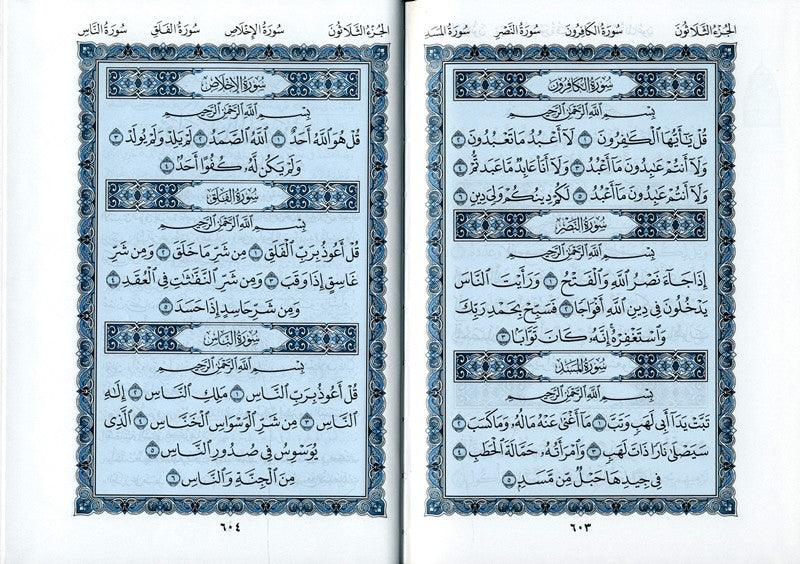 الجزء الثلاثون سورة الكافرون سورة النصر سورة المسد
سُورَةُ الكَافِرُونَ
بِسْمِ اللَّهِ الرَّحْمَٰنِ الرَّحِيمِ
قُلْ يَٰٓأَيُّهَا ٱلْكَٰفِرُونَ ١ لَآ أَعْبُدُ مَا تَعْبُدُونَ ٢
وَلَآ أَنتُمْ عَٰبِدُونَ مَآ أَعْبُدُ ٣ وَلَآ أَنَا۠ عَابِدٌ مَّا عَبَدتُّمْ ٤
وَلَآ أَنتُمْ عَٰبِدُونَ مَآ أَعْبُدُ ٥ لَكُمْ دِينُكُمْ وَلِيَ دِينِ ٦
سُورَةُ النَّصْرِ
بِسْمِ اللَّهِ الرَّحْمَٰنِ الرَّحِيمِ
إِذَا جَآءَ نَصْرُ ٱللَّهِ وَٱلْفَتْحُ ١ وَرَأَيْتَ ٱلنَّاسَ
يَدْخُلُونَ فِي دِينِ ٱللَّهِ أَفْوَاجًا ٢ فَسَبِّحْ بِحَمْدِ رَبِّكَ
وَٱسْتَغْفِرْهُ إِنَّهُۥ كَانَ تَوَّابًۢا ٣
سُورَةُ المَسَدِ
بِسْمِ اللَّهِ الرَّحْمَٰنِ الرَّحِيمِ
تَبَّتْ يَدَآ أَبِي لَهَبٍ وَتَبَّ ١ مَآ أَغْنَىٰ عَنْهُ مَالُهُۥ وَمَا كَسَبَ ٢
سَيَصْلَىٰ نَارًا ذَاتَ لَهَبٍ ٣ وَٱمْرَأَتُهُۥ حَمَّالَةَ ٱلْحَطَبِ ٤
فِي جِيدِهَا حَبْلٌ مِّن مَّسَدٍۭ ٥
٦٠٣
الجزء الثلاثون سورة الإخلاص سورة الفلق سورة الناس
سُورَةُ الإِخْلَاصِ
بِسْمِ اللَّهِ الرَّحْمَٰنِ الرَّحِيمِ
قُلْ هُوَ ٱللَّهُ أَحَدٌ ١ ٱللَّهُ ٱلصَّمَدُ ٢ لَمْ يَلِدْ وَلَمْ يُولَدْ ٣
وَلَمْ يَكُن لَّهُۥ كُفُوًا أَحَدٌۢ ٤
سُورَةُ الفَلَقِ
بِسْمِ اللَّهِ الرَّحْمَٰنِ الرَّحِيمِ
قُلْ أَعُوذُ بِرَبِّ ٱلْفَلَقِ ١ مِن شَرِّ مَا خَلَقَ ٢ وَمِن شَرِّ
غَاسِقٍ إِذَا وَقَبَ ٣ وَمِن شَرِّ ٱلنَّفَّٰثَٰتِ فِي ٱلْعُقَدِ ٤
وَمِن شَرِّ حَاسِدٍ إِذَا حَسَدَ ٥
سُورَةُ النَّاسِ
بِسْمِ اللَّهِ الرَّحْمَٰنِ الرَّحِيمِ
قُلْ أَعُوذُ بِرَبِّ ٱلنَّاسِ ١ مَلِكِ ٱلنَّاسِ ٢ إِلَٰهِ
ٱلنَّاسِ ٣ مِن شَرِّ ٱلْوَسْوَاسِ ٱلْخَنَّاسِ ٤ ٱلَّذِي
يُوَسْوِسُ فِي صُدُورِ ٱلنَّاسِ ٥
مِنَ ٱلْجِنَّةِ وَٱلنَّاسِ ٦
٦٠٤